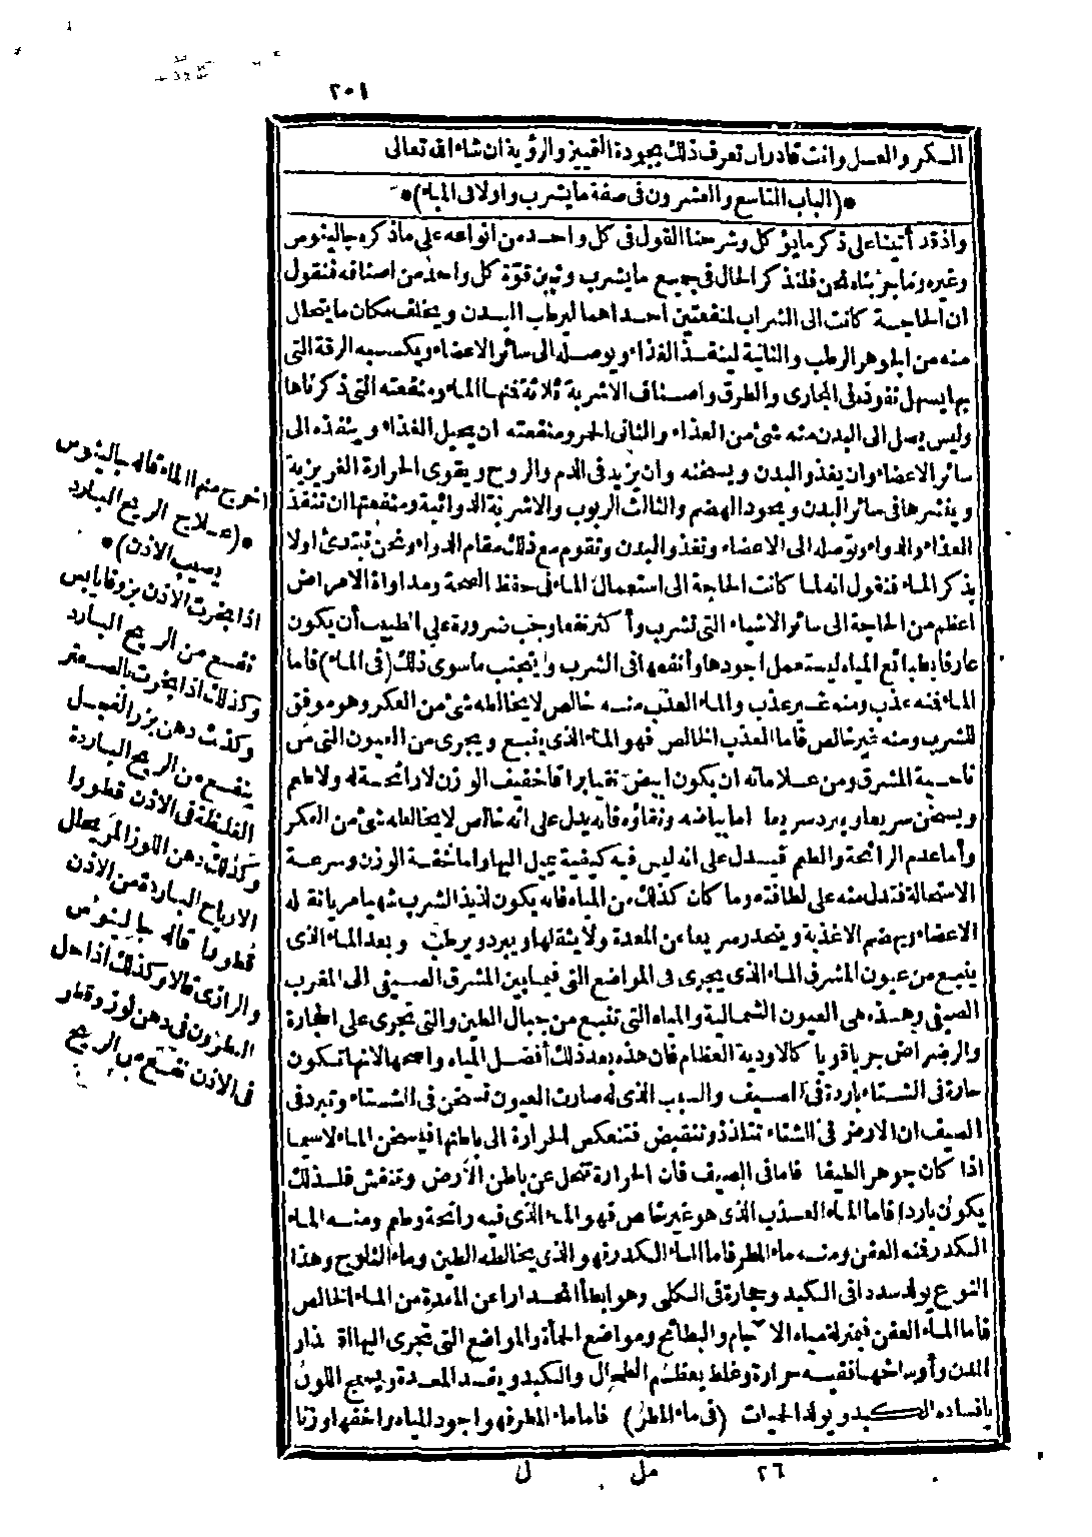 ٢٠١
السكر والعسل وانت قادر ان تعرف ذلك بجودة التمييز والرؤية ان شاء الله تعالى
*(الباب التاسع والعشرون فى صفة ما يشرب واولا فى الماء)*
واذ قد أتينا على ذكر ما يؤكل وشرحنا القول فى كل واحد من انواعه على ما ذكره جالينوس
وغيره وما جربناه نحن فلنذكر الحال فى جميع ما يشرب ونبين قوّة كل واحد من اصنافه فنقول
ان الحاجة كانت الى الشراب لمنفعتين احداهما ليرطب البدن ويخلف مكان ما يتحلل
منه من الجوهر الرطب والثانية لينفذ الغذاء ويوصله الى سائر الاعضاء ويكسبه الرقة التى
بها يسهل نفوذه فى المجارى والطرق واصناف الاشربة ثلاثة فمنها الماء ومنفعته التى ذكرناها
وليس يصل الى البدن منه شئ من الغذاء والثانى الخمر ومنفعته ان يحيل الغذاء وينفذه الى
سائر الاعضاء وان يغذو البدن ويسخنه وان يزيد فى الدم والروح ويقوى الحرارة الغريزية
وينشرها فى سائر البدن ويجود الهضم والثالث الربوب والاشربة الدوائية ومنفعتها ان تنفذ
الغذاء والدواء وتوصله الى الاعضاء وتغذو البدن وتقوم مع ذلك مقام الدواء ونحن نبتدئ اولا
بذكر الماء فنقول انه لما كانت الحاجة الى استعمال الماء فى حفظ الصحة ومداواة الامراض
اعظم من الحاجة الى سائر الاشياء التى تشرب وأكثر نفعا وجب ضرورة على الطبيب أن يكون
عارفا بطبائع المياه ليستعمل اجودها وأنفعها فى الشرب ويتجنب ما سوى ذلك (فى الماء) فاما
الماء فمنه عذب ومنه غير عذب والماء العذب منه خالص لا يخالطه شئ من العكر وهو موفق
للشرب ومنه غير خالص فاما العذب الخالص فهو الماء الذى ينبع ويجرى من العيون التى من
ناحية المشرق ومن علاماته ان يكون ابيض نقيا براقا خفيف الوزن لا رائحة له ولا طعم
ويسخن سريعا ويبرد سريعا اما بياضه ونقاؤه فانه يدل على انه خالص لا يخالطه شئ من العكر
وأما عدم الرائحة والطعم فيدل على انه ليس فيه كيفية يميل اليها واما خفة الوزن وسرعة
الاستحالة فتدل منه على لطافته وما كان كذلك من المياه فانه يكون لذيذ الشرب شهيا مريا تقبله
الاعضاء ويهضم الاغذية وينحدر سريعا عن المعدة ولا يثقلها ويبرد ويرطب وبعد الماء الذى
ينبع من عيون المشرق الماء الذى يجرى فى المواضع التى فيما بين المشرق الصيفى الى المغرب
الصيفى وهذه هى العيون الشمالية والمياه التى تنبع من جبال الطين والتى تجرى على الحجارة
والرضراض جريا قويا كالاودية العظام فان هذه بعد ذلك أفضل المياه واصحها لانها تكون
حارة فى الشتاء باردة فى الصيف والسبب الذى له صارت العيون تسخن فى الشتاء وتبرد فى
الصيف ان الارض فى الشتاء تتلذذ وتنقبض فتنعكس الحرارة الى باطنها فيسخن الماء لاسيما
اذا كان جوهر الطيفا فاما فى الصيف فان الحرارة تتحلل عن باطن الأرض وتنفش فلذلك
يكون باردا فاما الماء العذب الذى هو غير خالص فهو الماء الذى فيه رائحة وطعم ومنه الماء
الكدر فمنه العفن ومنه ماء المطر فاما الماء الكدر فهو الذى يخالطه الطين وماء الثلوج وهذا
النوع يولد سددا فى الكبد وحجارة فى الكلى وهو ابطأ انحدارا عن المعدة من الماء الخالص
فاما الماء العفن فبمنزلة مياه الآجام والبطائح ومواضع الحمأة والمواضع التى تجرى اليها اقذار
المدن وأوساخها ففيه حرارة وغلظ يعظم الطحال والكبد ويفسد المعدة ويسمج اللون
بافساده الكبد ويولد الحميات (فى ماء المطر) فاما ماء المطر فهو اجود المياه واخفها وزنا
٢٦ مل ل
اخرج منها الماء قاله جالينوس
*(علاج الريح البارد
يصيب الاذن)*
اذا بخرت الاذن بزوفا يابس
نفع من الريح البارد
وكذلك اذا بخرت بالصعتر
وكذا دهن بزر الفجل
ينفع من الريح الباردة
الغليظة فى الاذن قطورا
وكذلك دهن اللوز المر يحلل
الارياح الباردة من الاذن
قطورا قاله جالينوس
والرازى قالا وكذلك اذا حل
النطرون فى دهن لوز وقطر
فى الاذن نفع من الريح